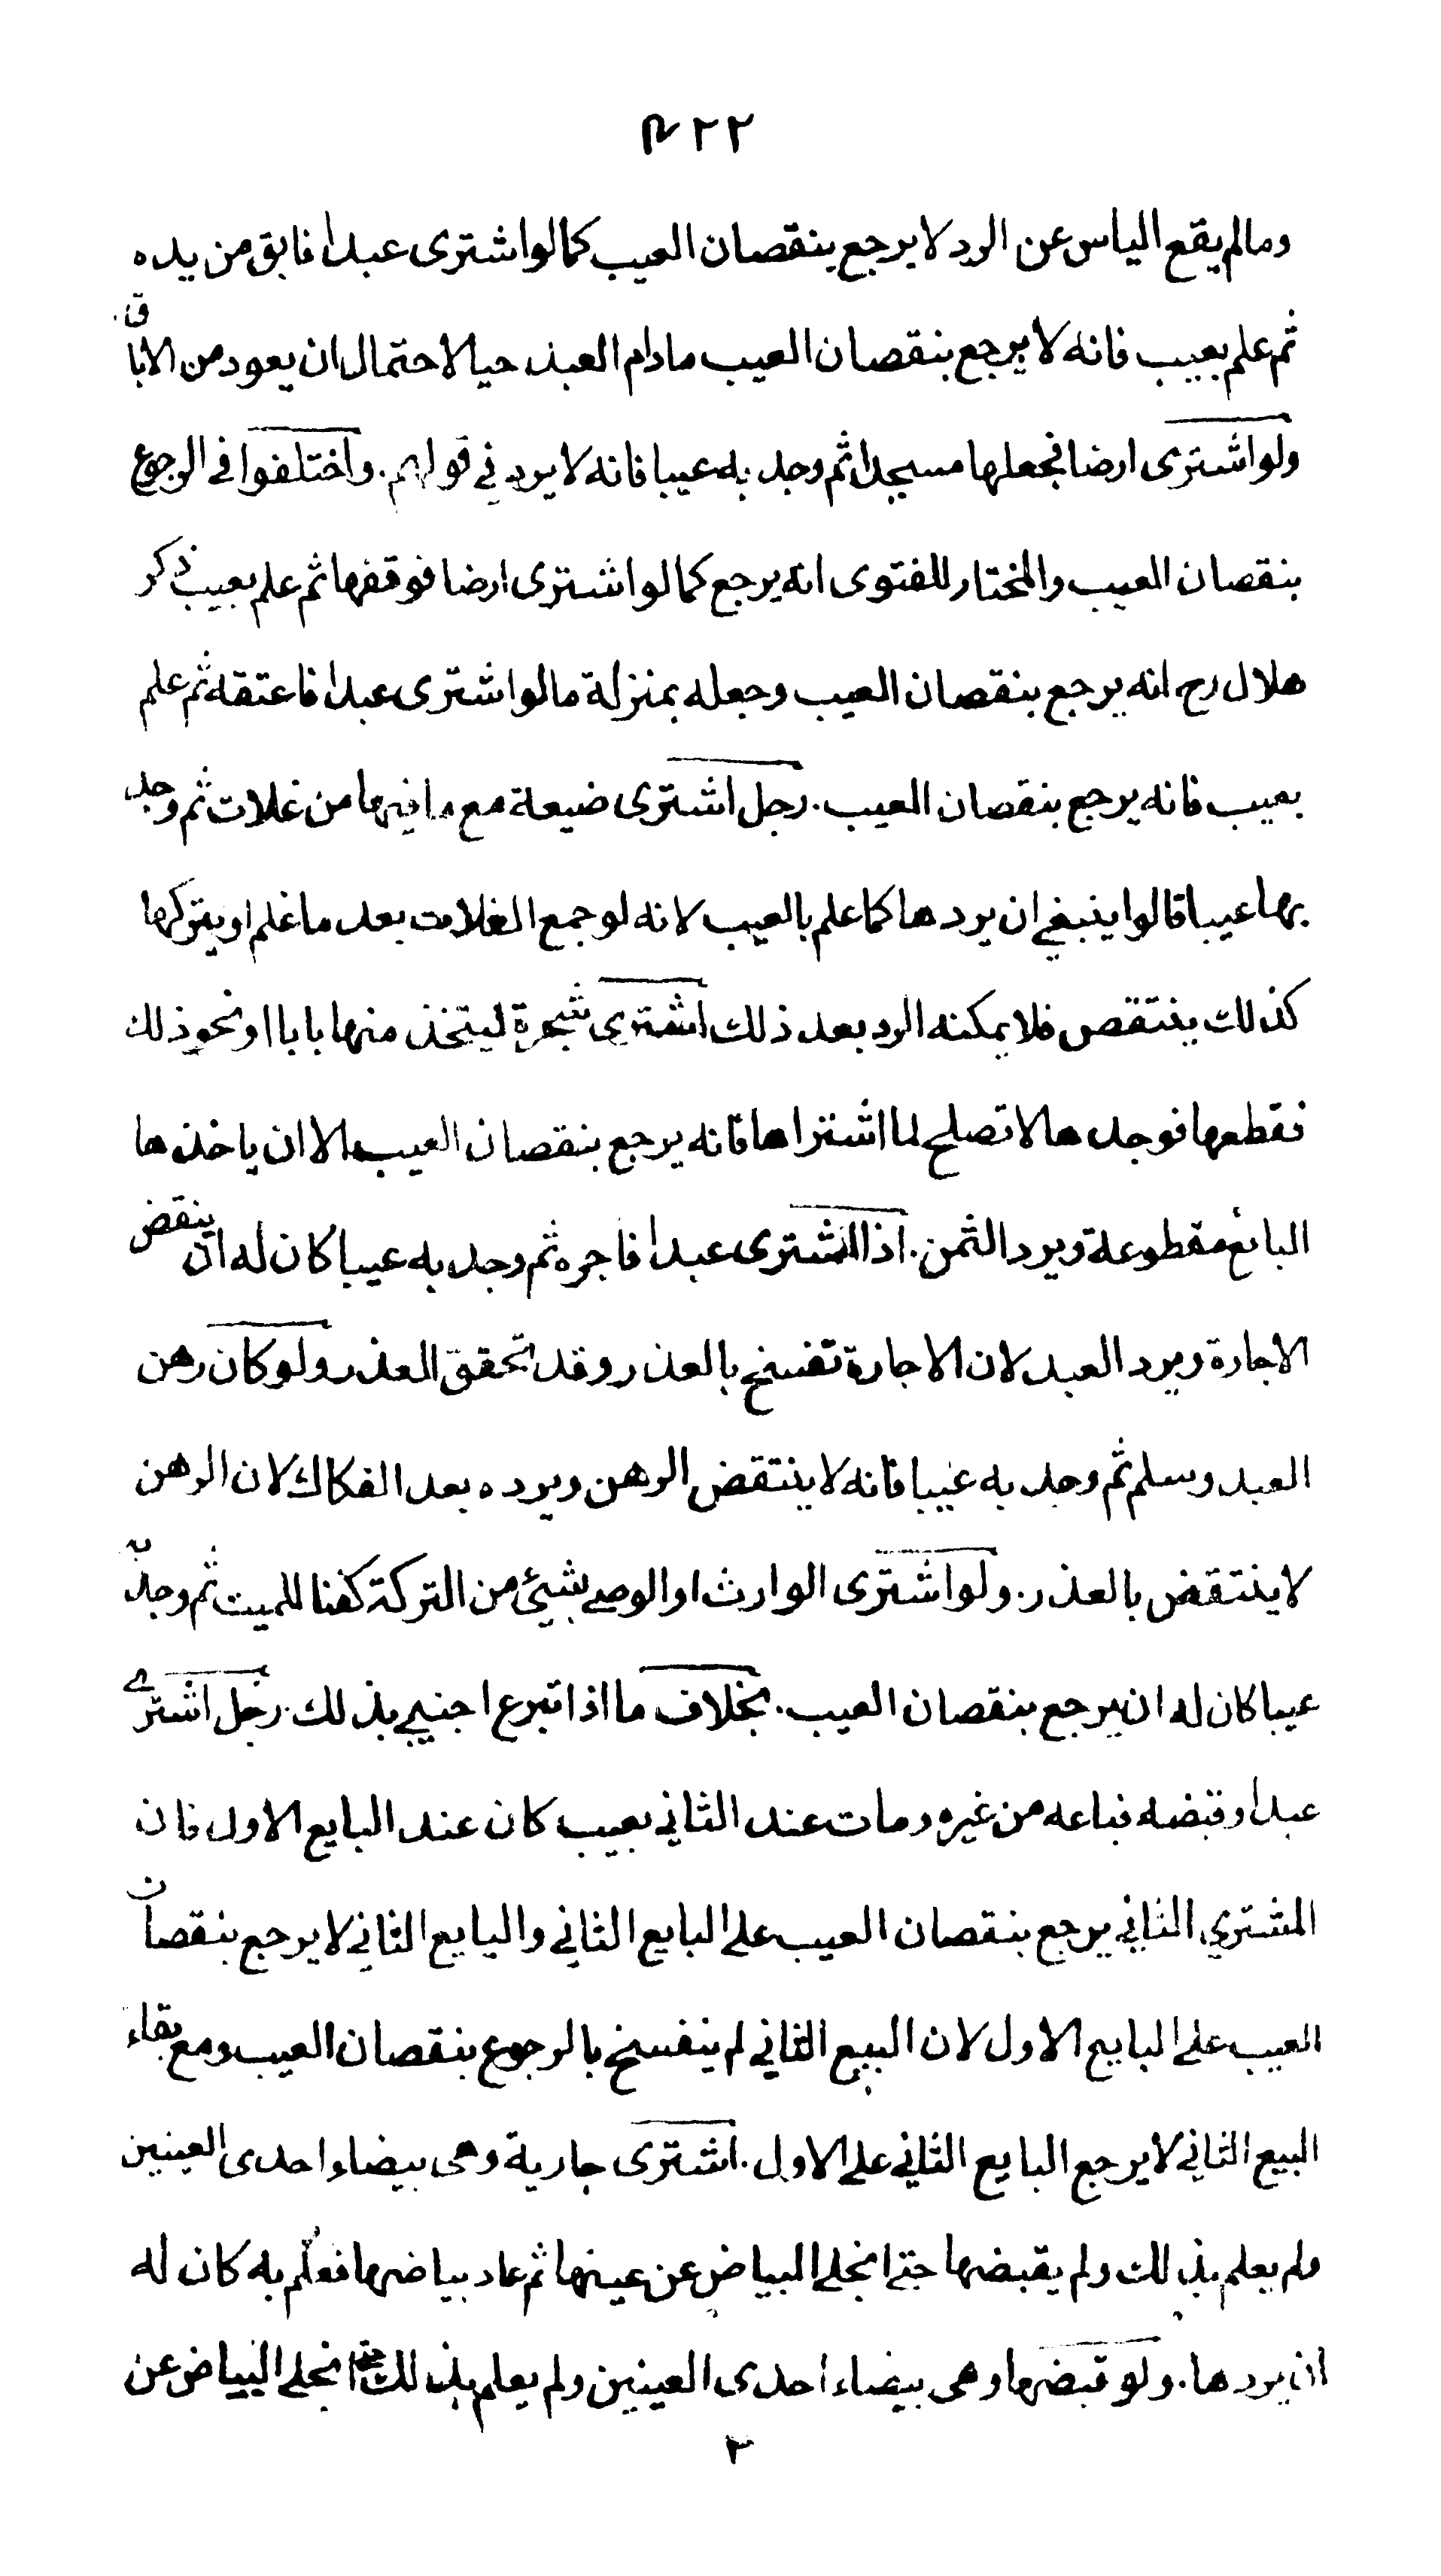 ٢٢٣
ومالم يقع الياس عن الرد لا يرجع بنقصان العيب كما لو اشترى عبدا فابق من يده
ثم علم بعيب فانه لا يرجع بنقصان العيب مادام العبد حيا لاحتمال ان يعود من الاباق
ولو اشترى ارضا فجعلها مسجدا ثم وجد به عيبا فانه لا يرد في قولهم. واختلفوا في الرجوع
بنقصان العيب والمختار للفتوى انه يرجع كما لو اشترى ارضا فوقفها ثم علم بعيب ذكر
هلال رح انه يرجع بنقصان العيب وجعله بمنزلة ما لو اشترى عبدا فاعتقه ثم علم
بعيب فانه يرجع بنقصان العيب. رجل اشترى ضيعة مع ما فيها من غلات ثم وجد
بها عيبا قالوا ينبغي ان يردها كما علم بالعيب لانه لو جمع الغلات بعد ما علم او يتركها
كذلك ينتقص فلا يمكنه الرد بعد ذلك اشترى شجرة ليتخذ منها بابا او نحو ذلك
فقطعها فوجدها لا تصلح لما اشتراها فانه يرجع بنقصان العيب الا ان ياخذها
البائع مقطوعة ويرد الثمن. اذا اشترى عبدا فاجره ثم وجد به عيبا كان له ان ينقض
الاجارة ويرد العبد لان الاجارة تفسخ بالعذر وقد تحقق العذر ولو كان رهن
العبد وسلم ثم وجد به عيبا فانه لا ينتقض الرهن ويرده بعد الفكاك لان الرهن
لا ينتقض بالعذر. ولو اشترى الوارث او الوصي بشيئ من التركة كفنا للميت ثم وجد به
عيبا كان له ان يرجع بنقصان العيب. بخلاف ما اذا تبرع اجنبي بذلك. رجل اشترى
عبدا وقبضه فباعه من غيره ومات عند الثاني بعيب كان عند البايع الاول فان
المشتري الثاني يرجع بنقصان العيب على البايع الثاني والبايع الثاني لا يرجع بنقصان
العيب على البايع الاول لان البيع الثاني لم ينفسخ بالرجوع بنقصان العيب ومع بقاء
البيع الثاني لا يرجع البايع الثاني على الاول. اشترى جارية وهى بيضاء احدى العينين
ولم يعلم بذلك ولم يقبضها حتى انجلى البياض عن عينها ثم عاد بياضها فعلم به كان له
ان يردها. ولو قبضها وهى بيضاء احدى العينين ولم يعلم بذلك حتى انجلى البياض عن